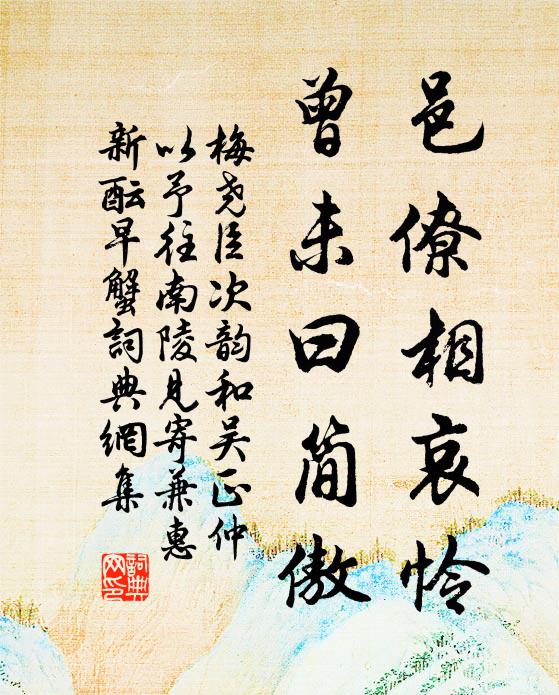 邑僚相哀怜
曾未曰简傲
梅尧臣次韵和吴正仲
以予往南陵见寄兼惠
新酝早蟹詞典網集
詞典
网印